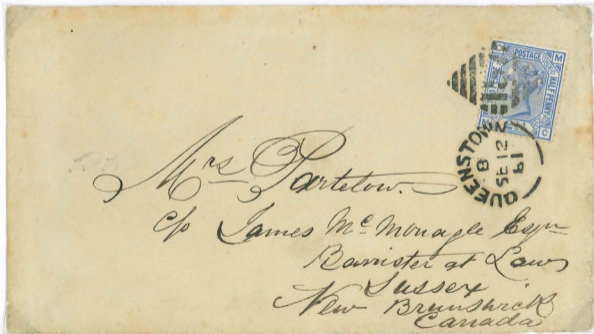 POSTAGE
HALF PENNY
M
C
QUEENSTOWN
B
SE 12
Mrs Partelow.
c/o James McMonagle Esqr
Barrister at Law
Sussex
New Brunswick
Canada